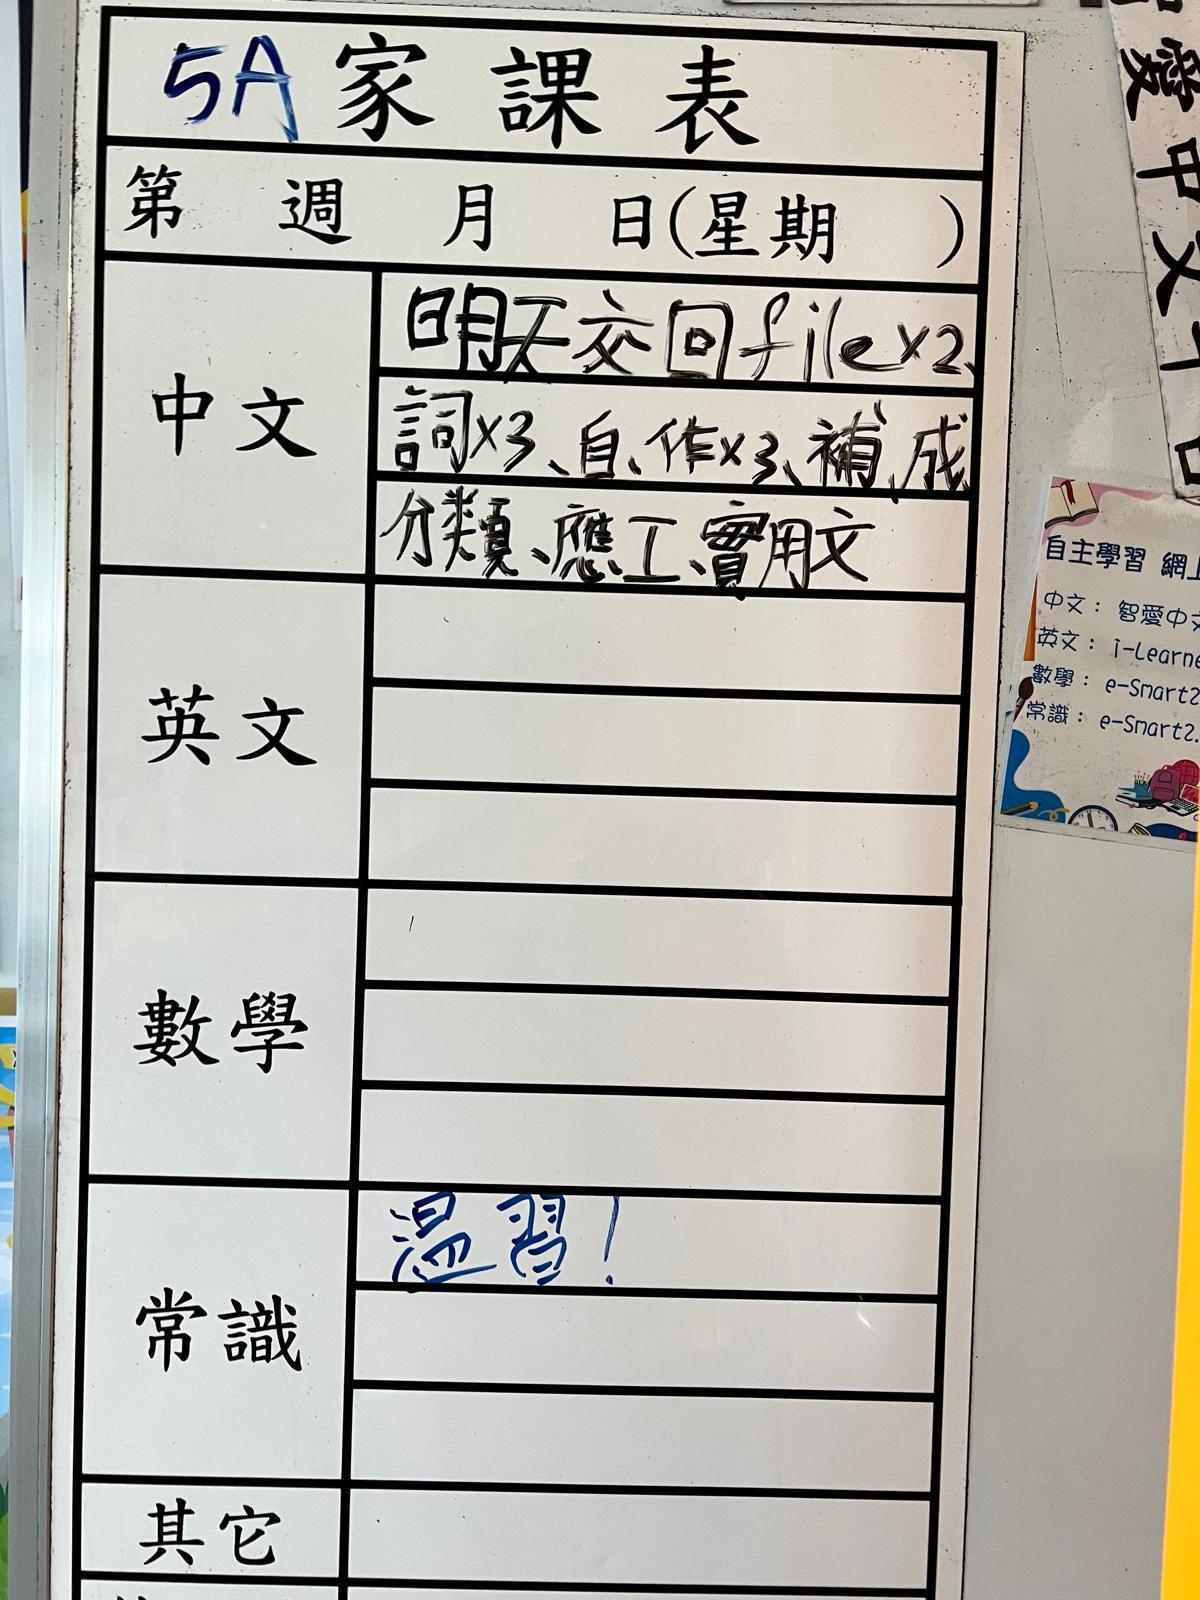 5A家課表
第 週 月 日(星期 )
中文
明天交回file×2、
詞×3、自、作×3、補、成
分類、應工、實用文
英文
數學
常識
温習!
其它
愛中文平台
自主學習 網上
中文： 智愛中文
英文： i-Learne
數學： e-Smart2
常識： e-Smart2.